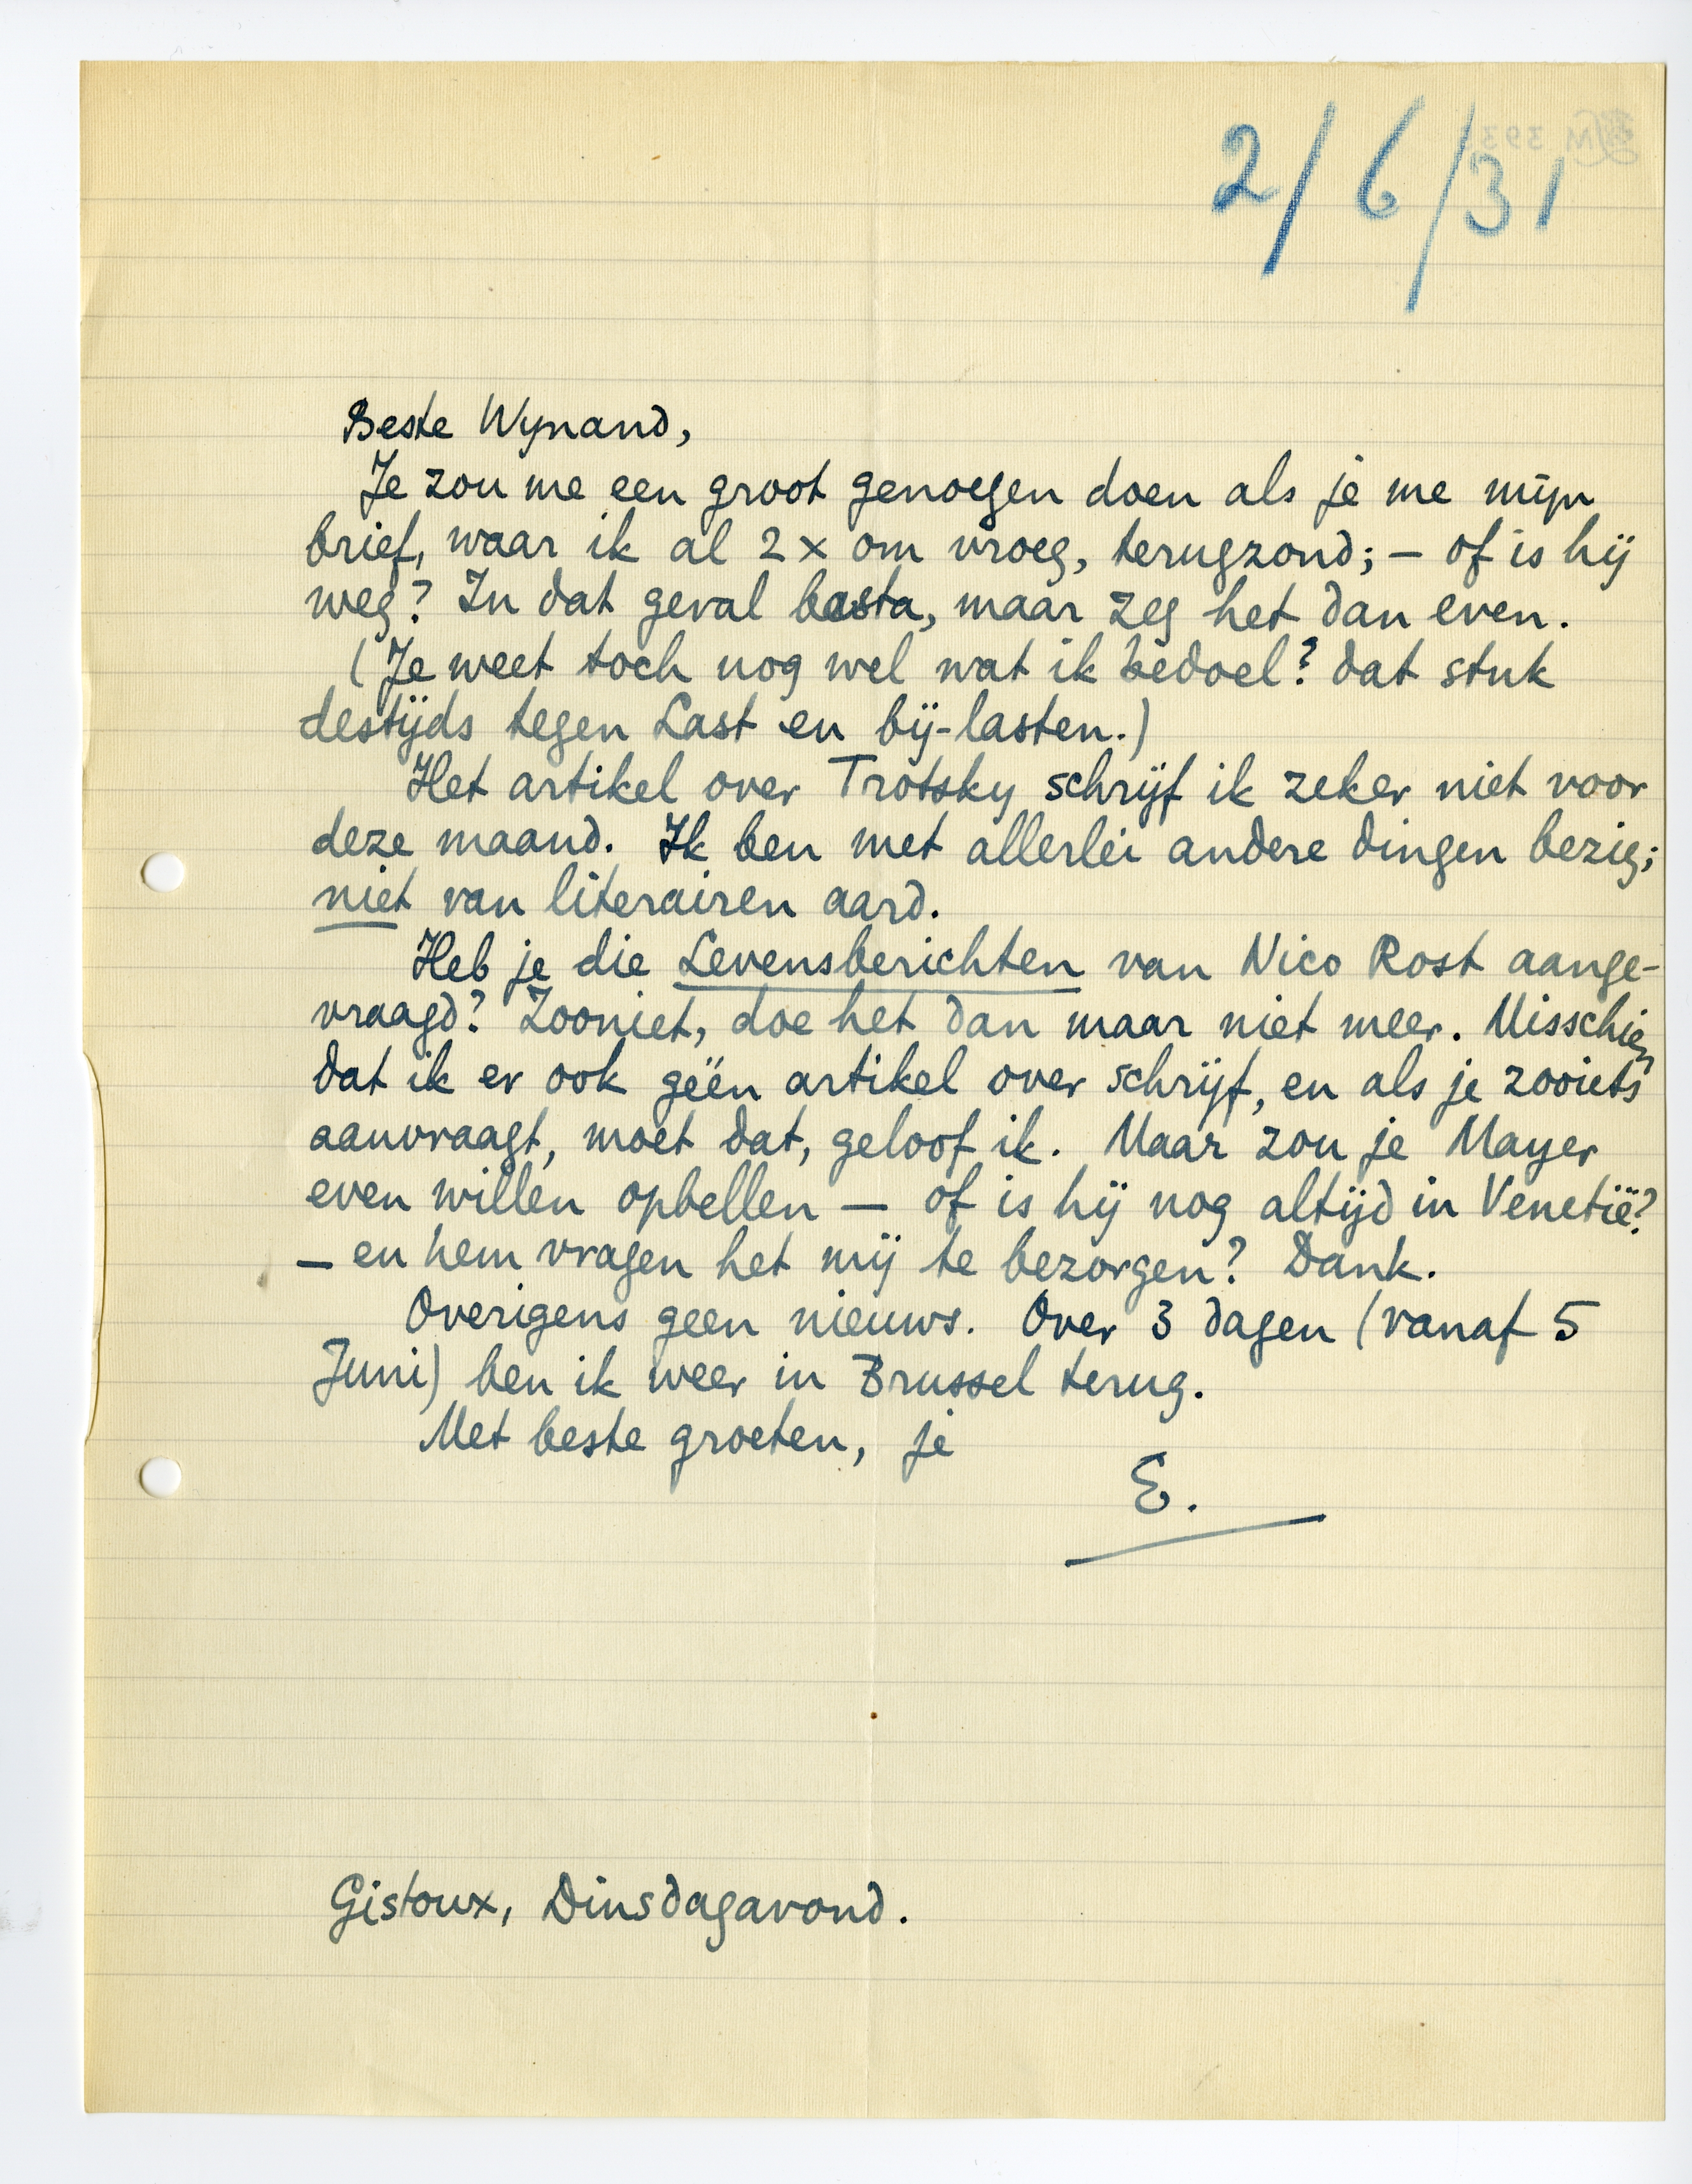 2/6/31
Beste Wynand,
Je zou me een groot genoegen doen als je me mijn
brief, waar ik al 2 x om vroeg, terugzond; – of is hij
weg? In dat geval basta, maar zeg het dan even.
(Je weet toch nog wel wat ik bedoel? dat stuk
destijds tegen Last en bij-lasten.)
Het artikel over Trotsky schrijf ik zeker niet voor
deze maand. Ik ben met allerlei andere dingen bezig;
niet van literairen aard.
Heb je die Levensberichten van Nico Rost aange-
vraagd? Zooniet, doe het dan maar niet meer. Misschien
dat ik er ook géén artikel over schrijf, en als je zooiets
aanvraagt, moet dat, geloof ik. Maar zou je Mayer
even willen opbellen – of is hij nog altijd in Venetië?
– en hem vragen het mij te bezorgen? Dank.
Overigens geen nieuws. Over 3 dagen (vanaf 5
Juni) ben ik weer in Brussel terug.
Met beste groeten, je
E.
Gistoux, Dinsdagavond.